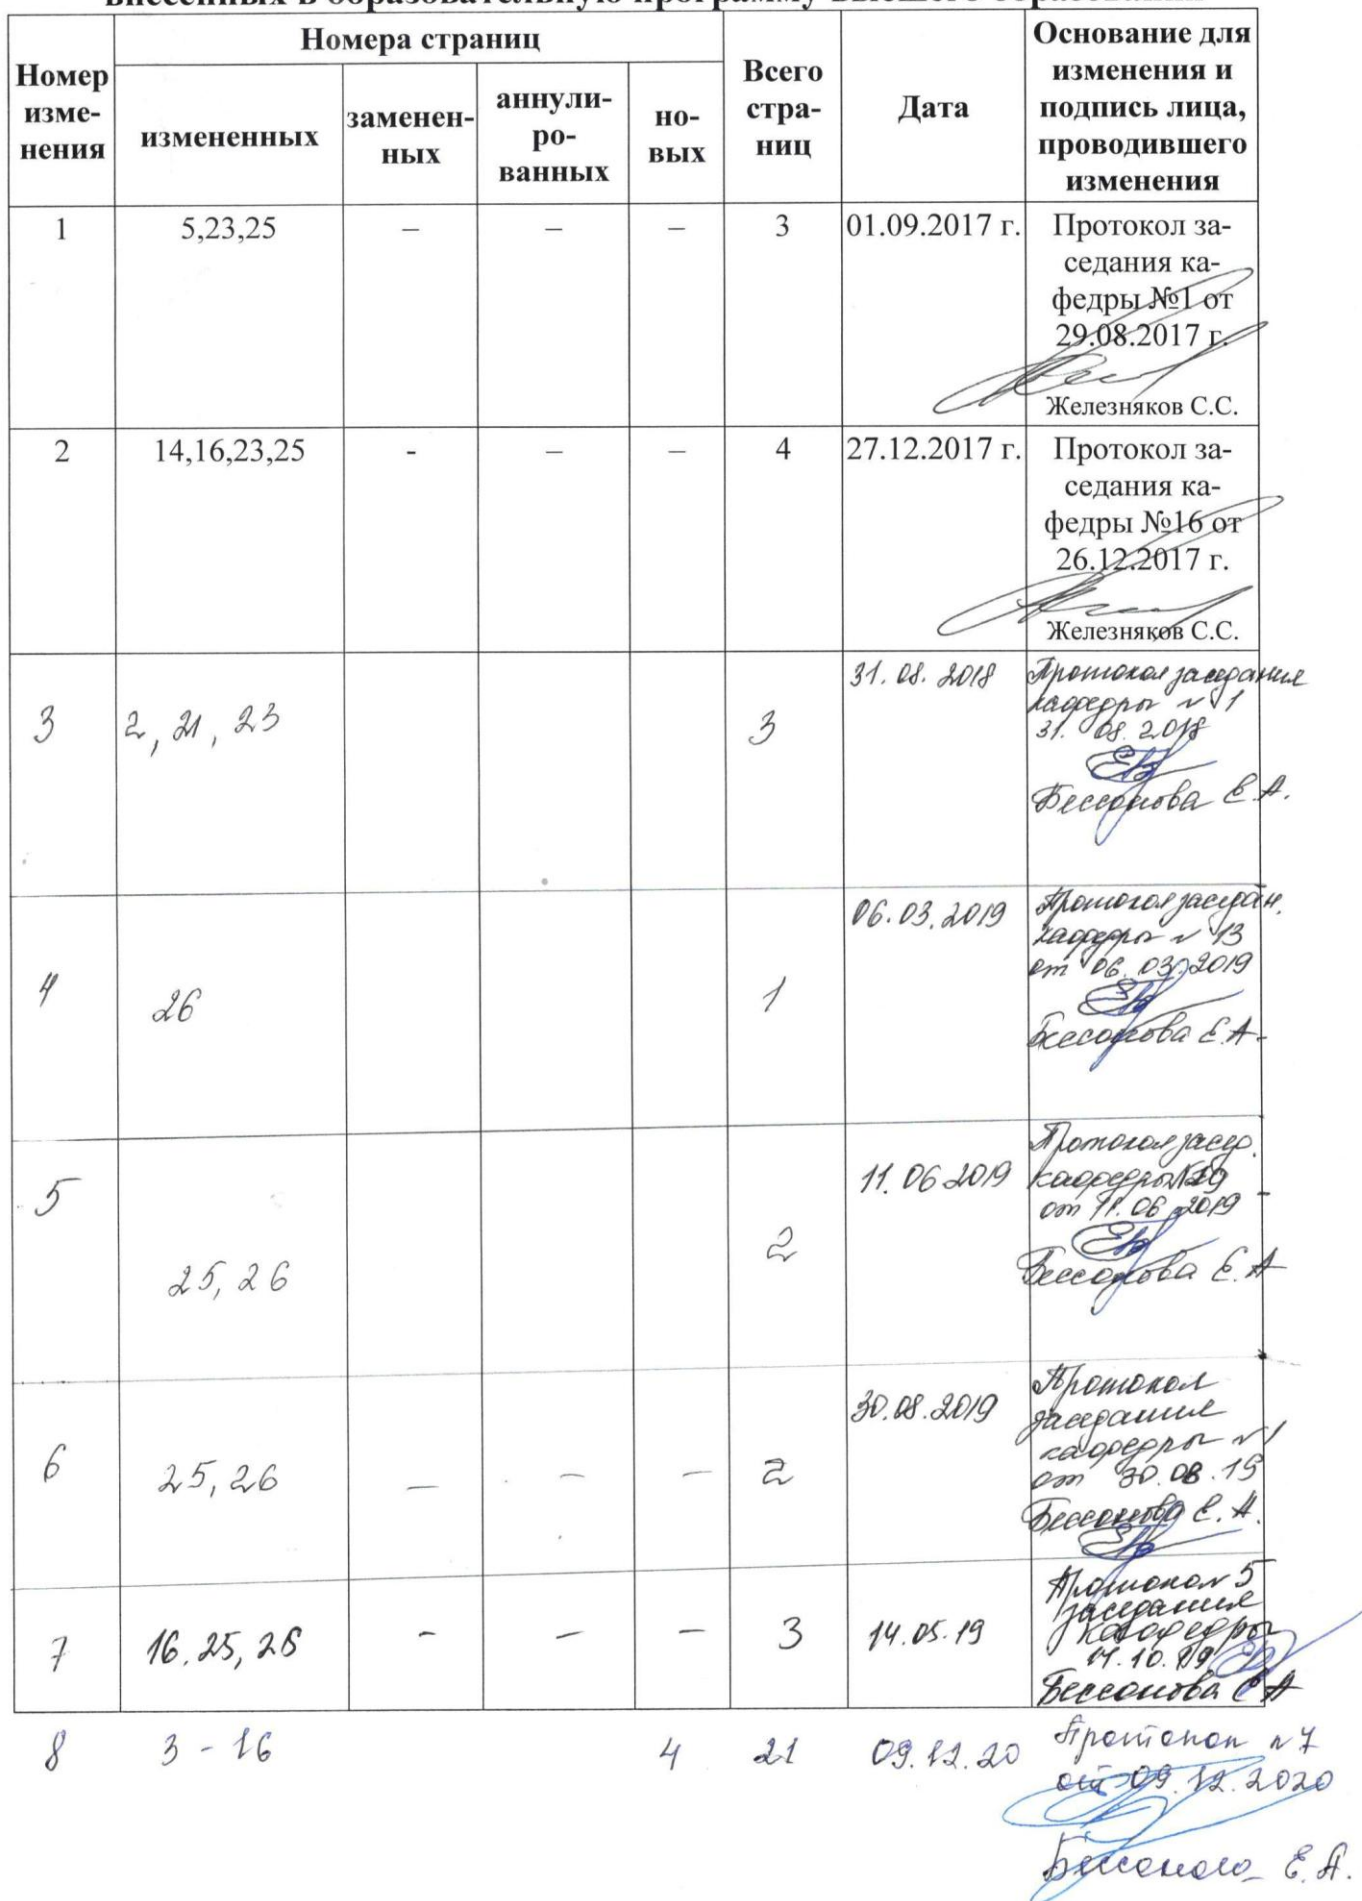 внесенных в образовательную программу высшего образования
Номер изме- нения
Номера страниц
измененных
заменен- ных
аннули- ро- ванных
но- вых
Всего стра- ниц
Дата
Основание для изменения и подпись лица, проводившего изменения
1 5,23,25 – – – 3 01.09.2017 г. Протокол за-
седания ка-
федры №1 от
29.08.2017 г.
Железняков С.С.
2 14,16,23,25 - – – 4 27.12.2017 г. Протокол за-
седания ка-
федры №16 от
26.12.2017 г.
Железняков С.С.
3 2, 21, 23 3 31.08.2018 Протокол заседания
кафедры №1
31.08.2018
Бессонова Е.А.
4 26 1 06.03.2019 Протокол заседан.
кафедры №13
от 06.03.2019
Бессонова Е.А.
5 25, 26 2 11.06 2019 Протокол засед.
кафедры
от 11.06 2019
Бессонова Е.А
6 25, 26 – – – 2 30.08.2019 Протокол
заседания
кафедры №1
от 30.08.19
Бессонова Е.А.
7 16, 25, 26 - – – 3 Протокол 5
заседания
кафедры
Бессонова Е А
8 3 - 16 4 21 09.12.20 Протокол №7
от 09.12.2020
Е.А.